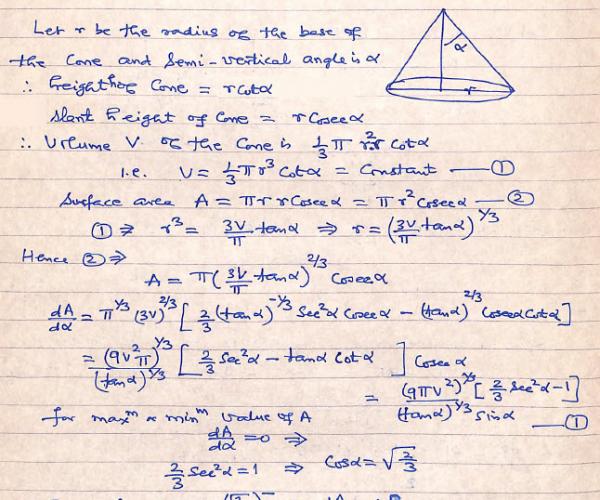 Let r be the radius of the base of
the Cone and Semi-vertical angle is α
∴ height of Cone = r cot α
Slant height of Cone = r Cosec α
∴ Volume V of the Cone is 1/3 π r² r cot α
i.e. V = 1/3 π r³ Cot α = Constant —— ①
Surface area A = π r r Cosec α = π r² Cosec α —— ②
① ⇒ r³ = 3V/π tan α ⇒ r = (3V/π tan α)^1/3
Hence ② ⇒
A = π (3V/π tan α)^2/3 Cosec α
dA/dα = π^1/3 (3V)^2/3 [2/3 (tan α)^-1/3 Sec² α Cosec α – (tan α)^2/3 Cosec α Cot α]
= (9V² π)^1/3/(tan α)^1/3 [2/3 Sec² α – tan α Cot α] Cosec α
= (9πV²)^1/3 [2/3 Sec² α – 1]/(tan α)^1/3 Sin α —— ①
for max^m or min^m value of A
dA/dα = 0 ⇒
2/3 Sec² α = 1 ⇒ Cos α = √2/3
α
r